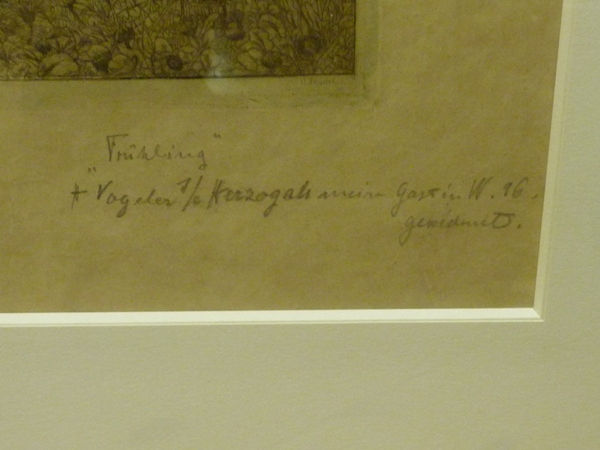 "Frühling"
H Vogeler f/e Herzogals mein Gast in W. 96.
gewidmet.